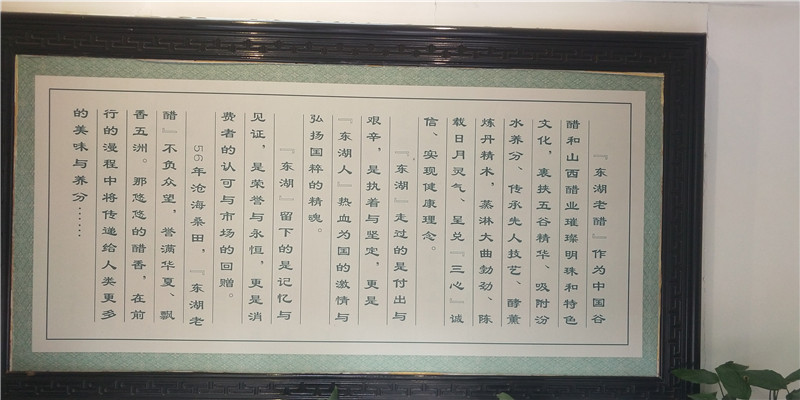 『东湖老醋』作为中国谷
醋和山西醋业璀璨明珠和特色
文化，裹挟五谷精华、吸附汾
水养分、传承先人技艺、酵薰
炼丹精术，蒸淋大曲勃劲、陈
载日月灵气、呈兑『三心』诚
信、实现健康理念。
『东湖』走过的是付出与
艰辛，是执着与坚定，更是
『东湖人』热血为国的激情与
弘扬国粹的精魂。
『东湖』留下的是记忆与
见证，是荣誉与永恒，更是消
费者的认可与市场的回赠。
56年沧海桑田，『东湖老
醋』不负众望，誉满华夏、飘
香五洲。那悠悠的醋香，在前
行的漫程中将传递给人类更多
的美味与养分……